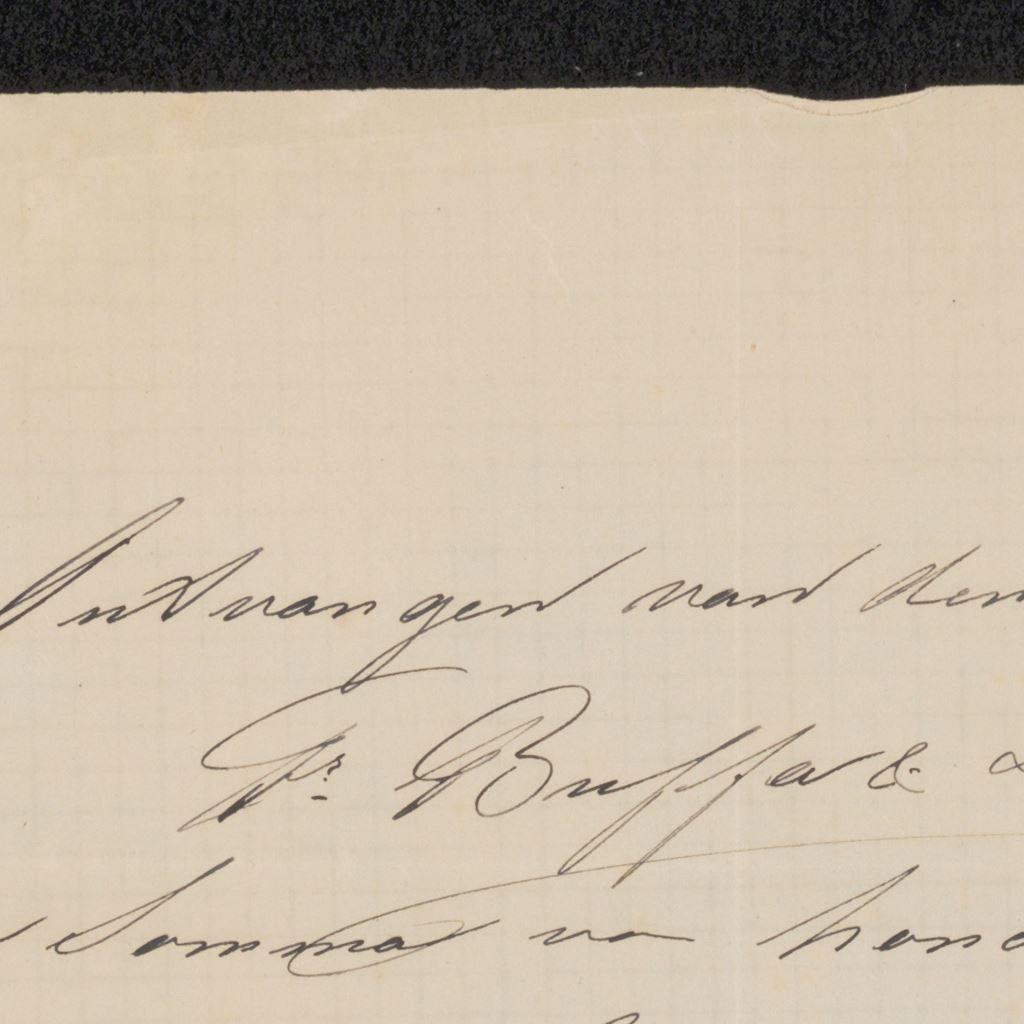 Ontvangen van den
Fr. Buffa &
Somma van hond